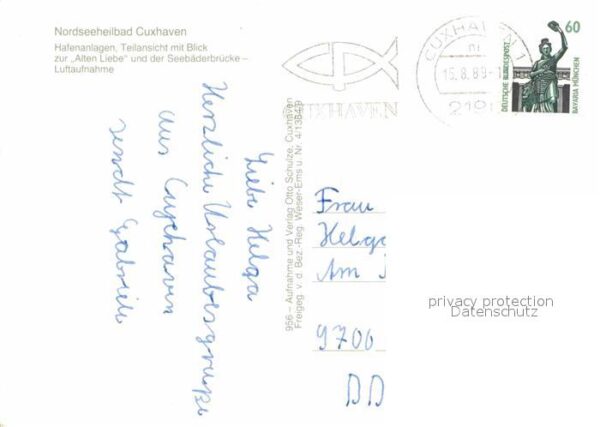 Nordseeheilbad Cuxhaven
Hafenanlagen, Teilansicht mit Blick
zur „Alten Liebe" und der Seebäderbrücke –
Luftaufnahme
CUXHAVEN 1
15.8.89
219
CUXHAVEN
60
DEUTSCHE BUNDESPOST
BAVARIA MÜNCHEN
Liebe Helga
Herzliche Urlaubsgrüße
aus Cuxhaven
sendt Gabriele
956 – Aufnahme und Verlag Otto Schulze, Cuxhaven
Freigeg. v. d. Bez.-Reg. Weser-Ems u. Nr. 4/1364/9
Frau
Helga
Am
9700
DD
privacy protection
Datenschutz